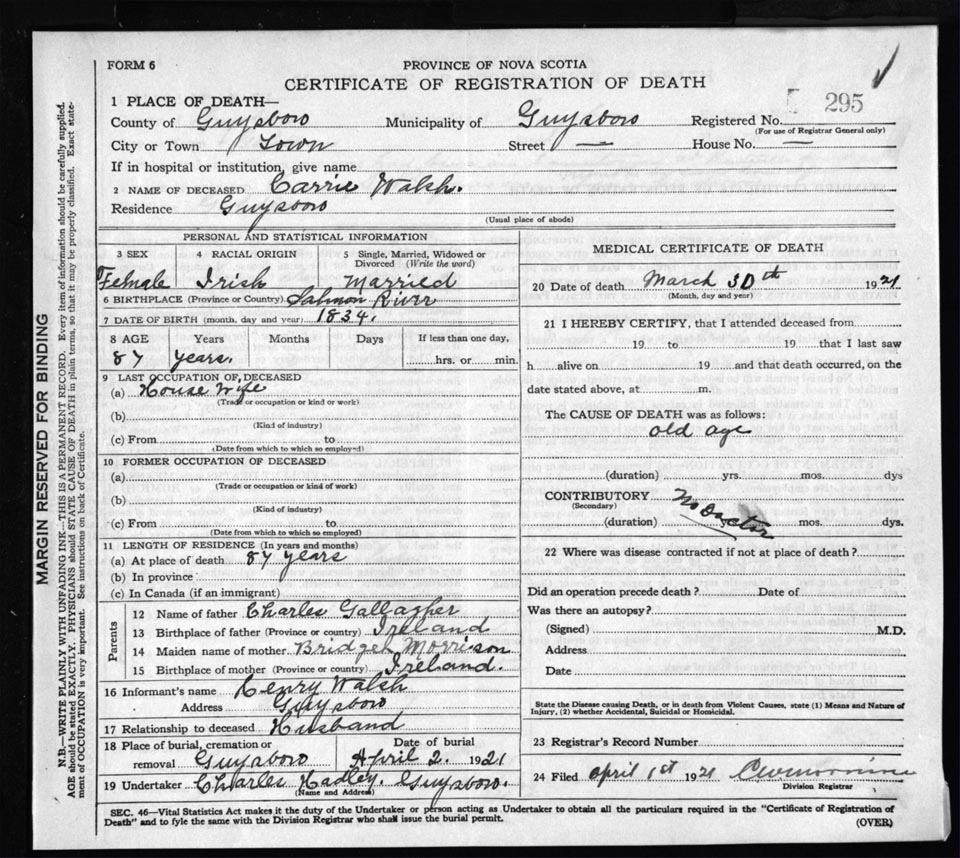 FORM 6
PROVINCE OF NOVA SCOTIA
CERTIFICATE OF REGISTRATION OF DEATH
295
1 PLACE OF DEATH—
County of Guysboro Municipality of Guysboro Registered No.
(For use of Registrar General only)
City or Town Town Street — House No. —
If in hospital or institution, give name
2 NAME OF DECEASED Carrie Walsh.
Residence Guysboro
(Usual place of abode)
PERSONAL AND STATISTICAL INFORMATION
3 SEX 4 RACIAL ORIGIN 5 Single, Married, Widowed or
Divorced (Write the word)
Female Irish Married
6 BIRTHPLACE (Province or Country) Salmon River
7 DATE OF BIRTH (month, day and year) 1834.
8 AGE Years Months Days If less than one day,
87 years. hrs. or min.
9 LAST OCCUPATION OF DECEASED
(a) House Wife
(Trade or occupation or kind or work)
(b)
(Kind of industry)
(c) From to
(Date from which to which so employed)
10 FORMER OCCUPATION OF DECEASED
(a)
(Trade or occupation or kind of work)
(b)
(Kind of industry)
(c) From to
(Date from which to which so employed)
11 LENGTH OF RESIDENCE (In years and months)
(a) At place of death 87 years
(b) In province
(c) In Canada (if an immigrant)
Parents
12 Name of father Charles Gallagher
13 Birthplace of father (Province or country) Ireland
14 Maiden name of mother Bridget Morrison
15 Birthplace of mother (Province or country) Ireland.
16 Informant's name Henry Walsh
Address Guysboro
17 Relationship to deceased Husband
18 Place of burial, cremation or Date of burial
removal Guysboro April 2. 1921
19 Undertaker Charles Hadley. Guysboro.
(Name and Address)
MEDICAL CERTIFICATE OF DEATH
20 Date of death March 30th 1921
(Month, day and year)
21 I HEREBY CERTIFY, that I attended deceased from
19 to 19 that I last saw
h alive on 19 and that death occurred, on the
date stated above, at m.
The CAUSE OF DEATH was as follows:
old age
(duration) yrs. mos. dys
CONTRIBUTORY No Doctor
(Secondary)
(duration) yrs. mos. dys.
22 Where was disease contracted if not at place of death?
Did an operation precede death? Date of
Was there an autopsy?
(Signed) M.D.
Address
Date
State the Disease causing Death, or in death from Violent Causes, state (1) Means and Nature of
Injury, (2) whether Accidental, Suicidal or Homicidal.
23 Registrar's Record Number
24 Filed April 1st 1921
Division Registrar
SEC. 46—Vital Statistics Act makes it the duty of the Undertaker or person acting as Undertaker to obtain all the particulars required in the "Certificate of Registration of
Death" and to fyle the same with the Division Registrar who shall issue the burial permit.
(OVER)
MARGIN RESERVED FOR BINDING
N.B.—WRITE PLAINLY WITH UNFADING INK—THIS IS A PERMANENT RECORD. Every item of information should be carefully supplied.
AGE should be stated EXACTLY. PHYSICIANS should STATE CAUSE OF DEATH in plain terms, so that it may be properly classified. Exact state-
ment of OCCUPATION is very important. See instructions on back of Certificate.